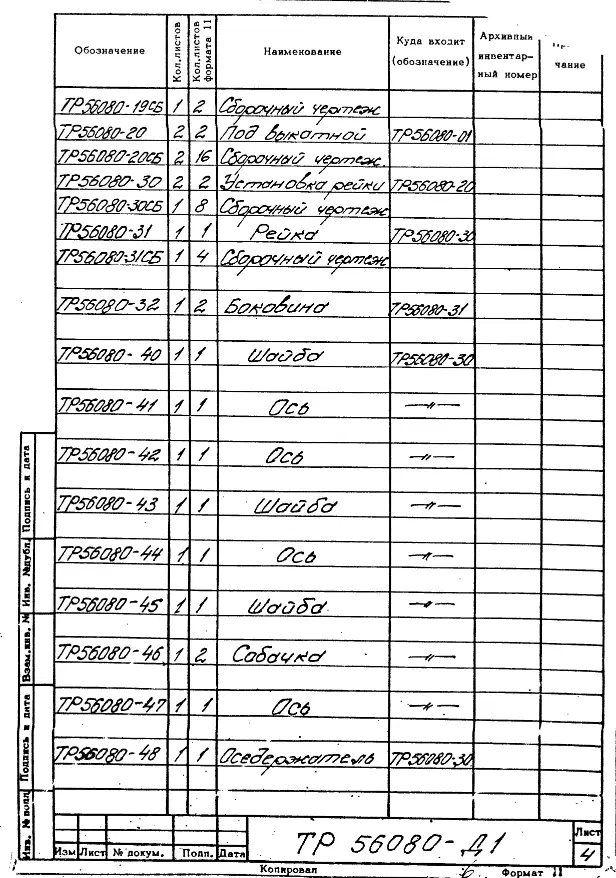 Обозначение Кол.листов Кол.листов формата 11 Наименование Куда входит (обозначение) Архивный инвентарный номер чание
ТР56080-19СБ 1 2 Сборочный чертеж
ТР56080-20 2 2 Под выкатной ТР56080-01
ТР56080-20СБ 2 16 Сборочный чертеж.
ТР56080-30 2 2 Установка рейки ТР56080-20
ТР56080-30СБ 1 8 Сборочный чертеж
ТР56080-31 1 1 Рейка ТР56080-30
ТР56080-31СБ 1 4 Сборочный чертеж
ТР56080-32 1 2 Боковина ТР56080-31
ТР56080-40 1 1 Шайба ТР56080-30
ТР56080-41 1 1 Ось —"—
ТР56080-42 1 1 Ось —"—
ТР56080-43 1 1 Шайба —"—
ТР56080-44 1 1 Ось —"—
ТР56080-45 1 1 Шайба —"—
ТР56080-46 1 2 Сабачка —"—
ТР56080-47 1 1 Ось —"—
ТР56080-48 1 1 Оседержатель ТР56080-30
Подпись и дата
Инв. №дубл.
Взам.инв. №
Подпись и дата
Инв. № подл
Изм Лист № докум. Подп. Дата
ТР 56080-Д1
Лист
4
Копировал
Формат 11